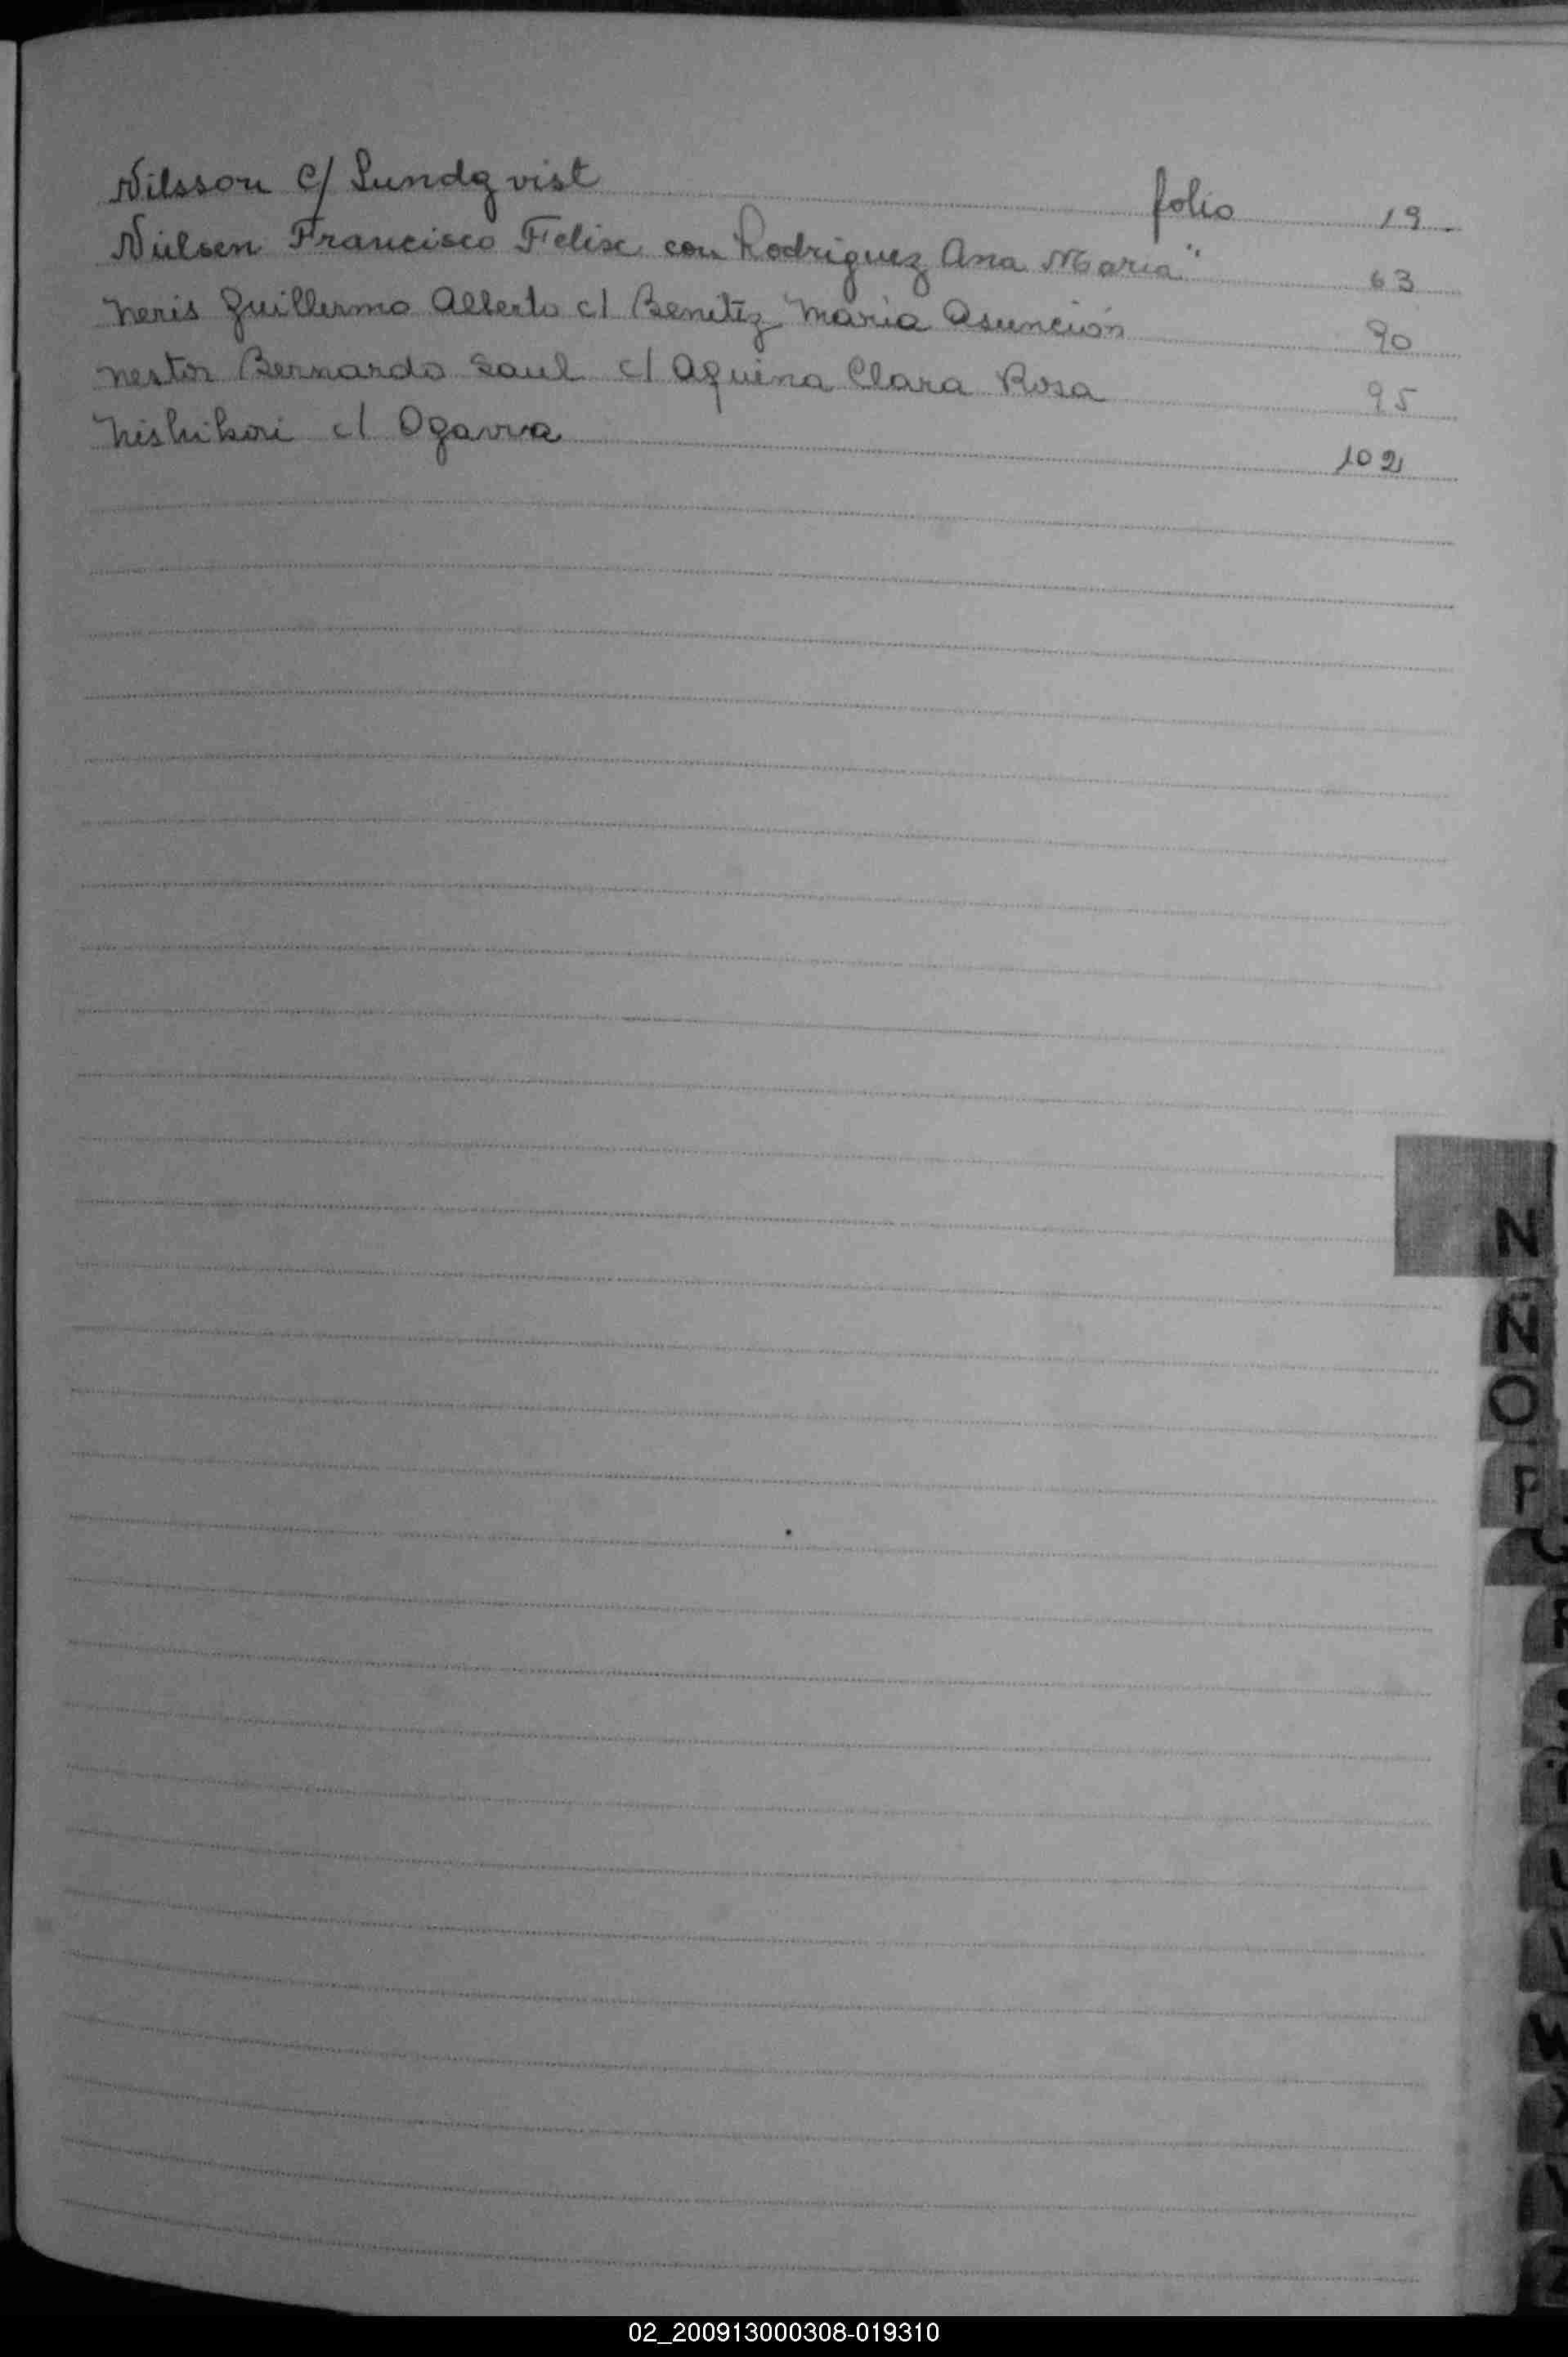 Nilsson c/ Sundqvist folio 19
Nielsen Francisco Felix con Rodriguez Ana Maria " 63
Neris Guillermo Alberto c/ Benitez Maria Asunción 90
Nestor Bernardo Saul c/ Aquina Clara Rosa 95
Nishikori c/ Ogawa 102
N
Ñ
O
P
02_200913000308-019310